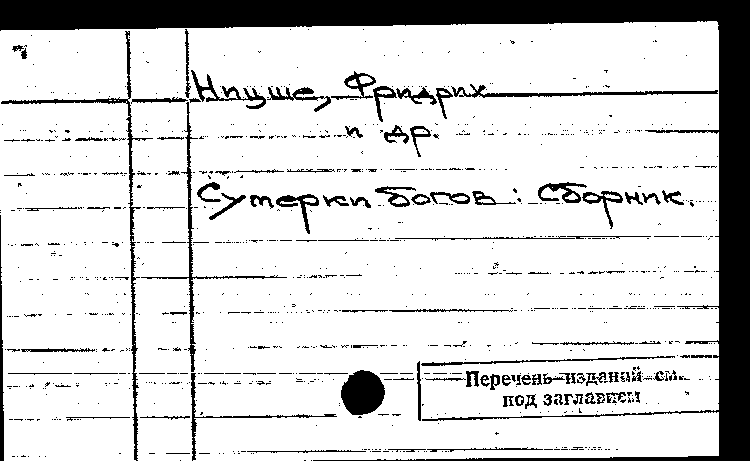 Ницше, Фридрих
и др.
Сумерки богов : Сборник.
Перечень изданий см.
под заглавием